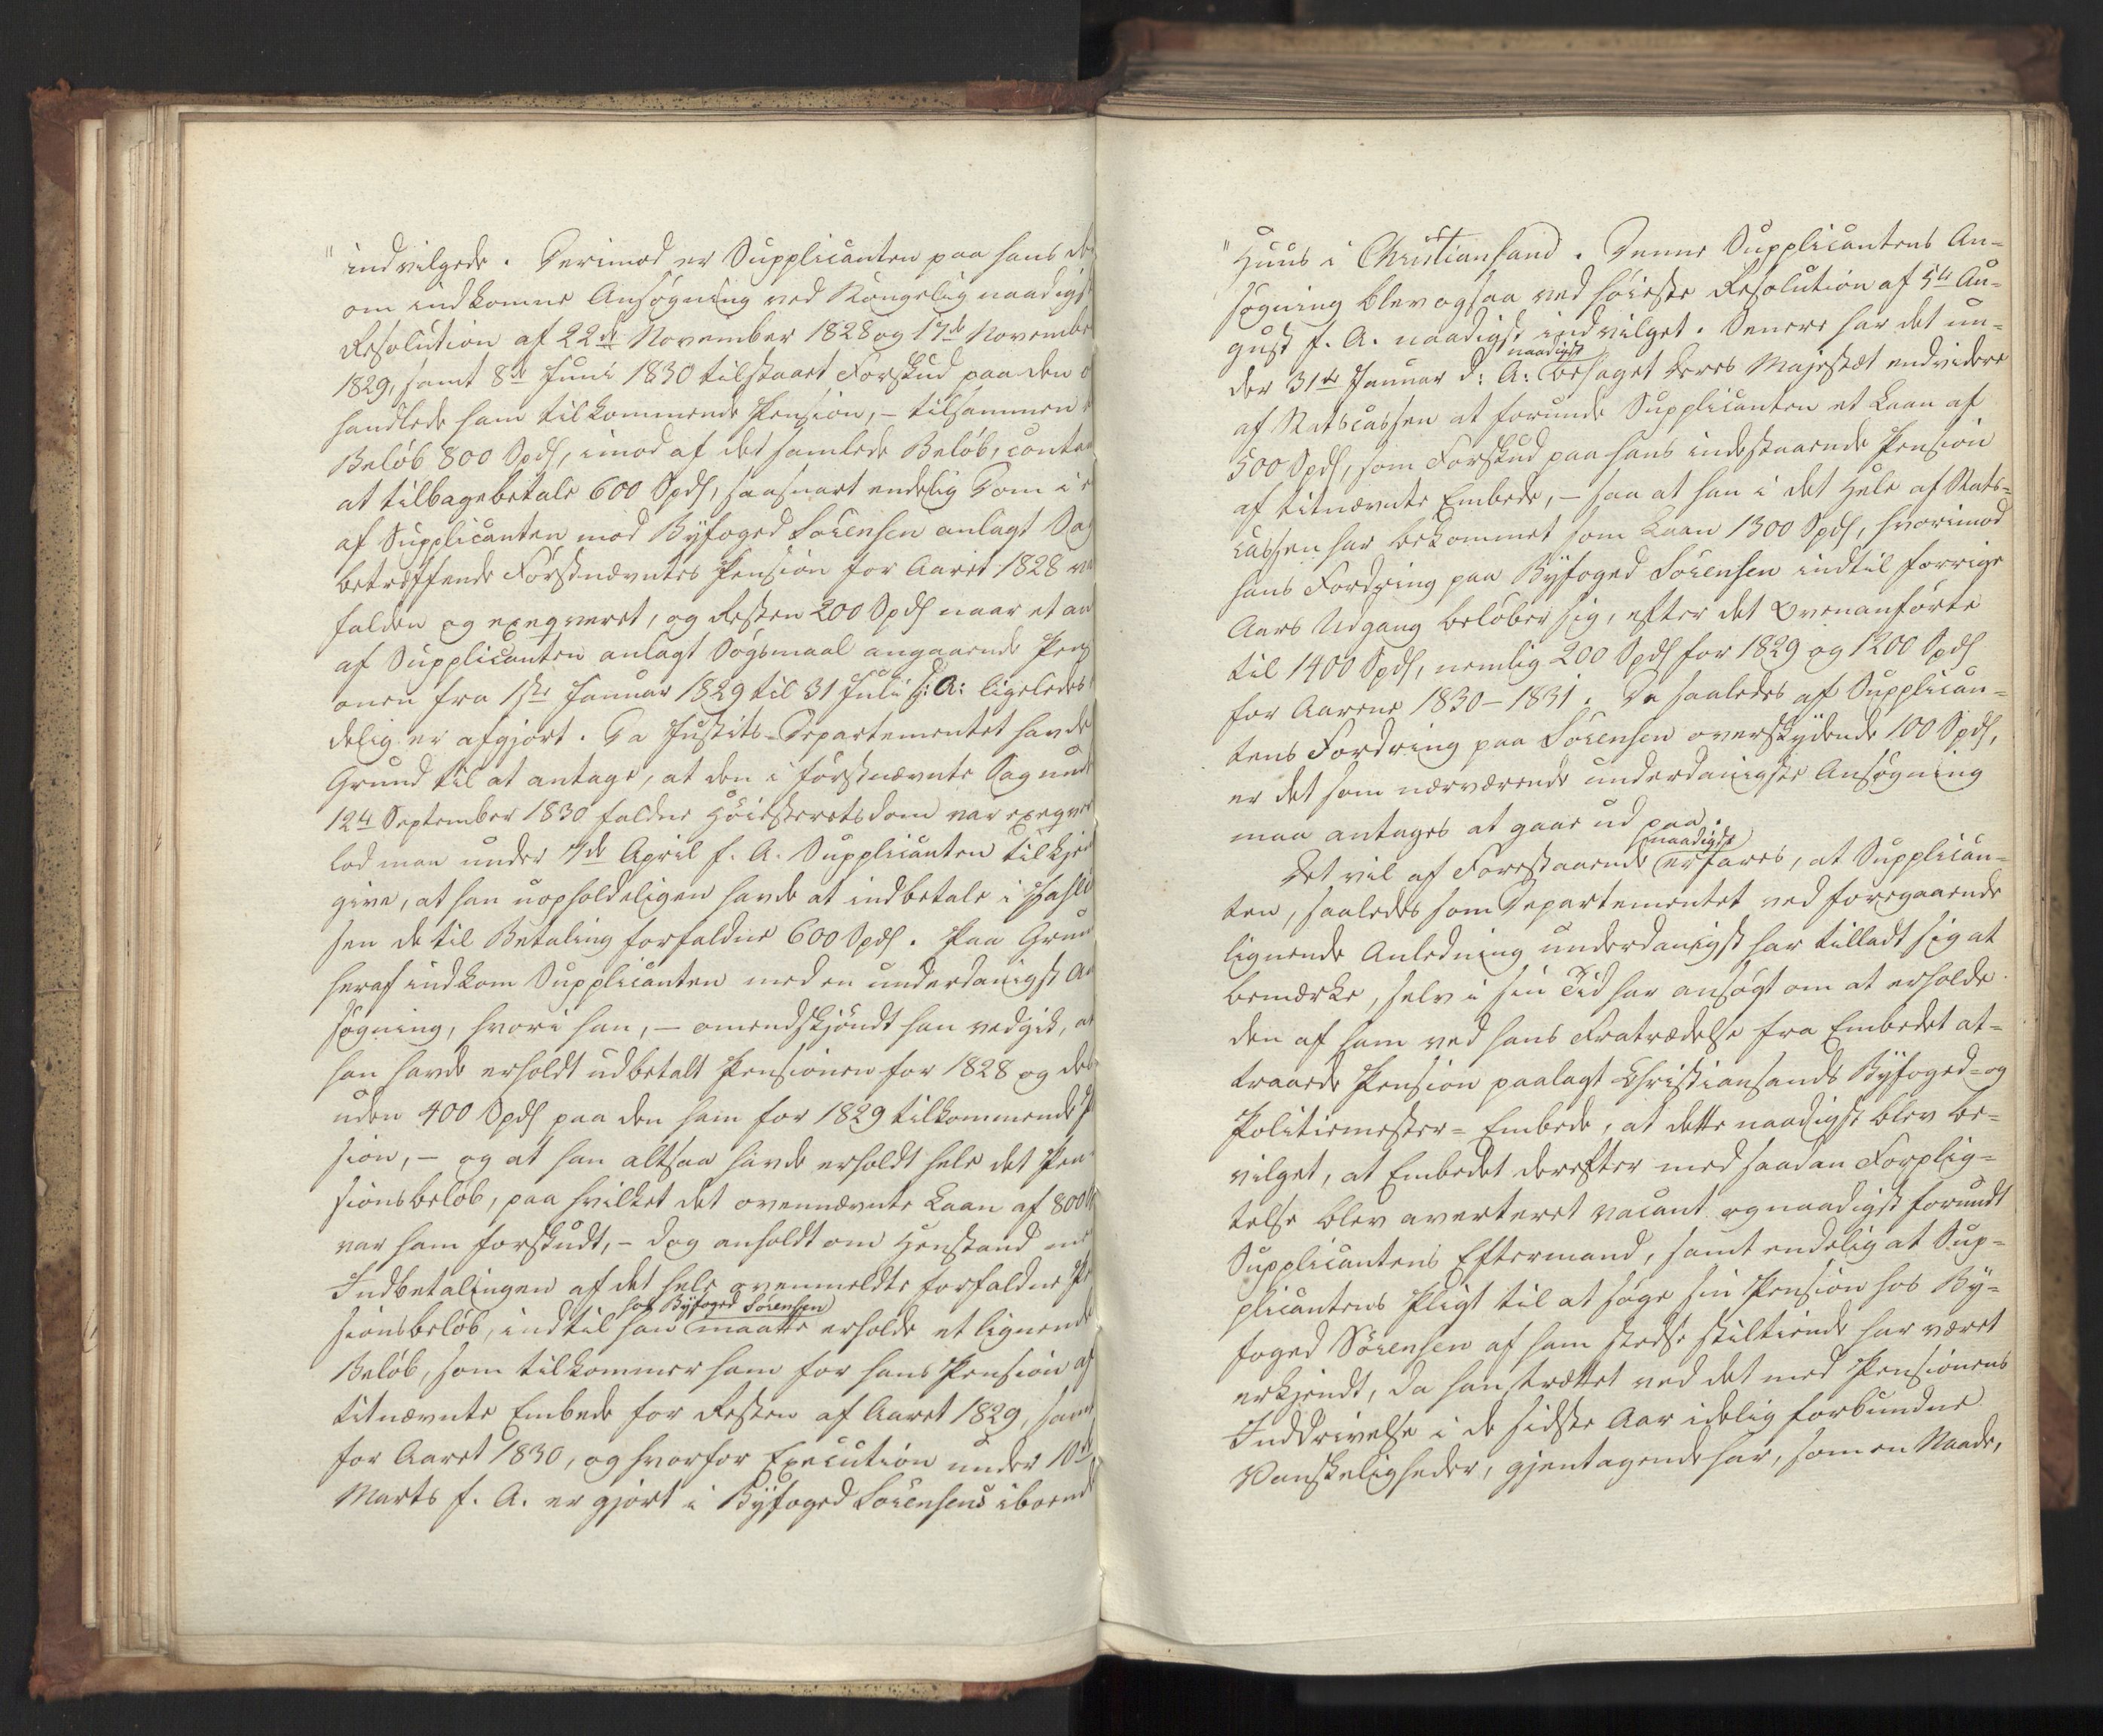 "indvilgede. Derimod er Supplicanten paa hans des
om indkomne Ansøgning ved Kongelig naadigst
Resolution af 22de November 1828 og 17de Novembe
1829, samt 8de Juni 1830 tilstaaet Forskud paa den o
handlede ham tilkommende Pension, – tilsammen e
Beløb 800 Spd, imod af det samlede Beløb, contan
at tilbagebetale 600 Spd, saasnart endelig Dom i e
af Supplicanten mod Byfoged Sørensen anlagt Sag
betræffende Førstnævntes Pension for Aaret 1828 va
falden og exeqveret, og Resten 200 Spd naar et an
af Supplicanten anlagt Søgsmaal angaaende Pensi
onen fra 1ste Januar 1829 til 31 Juli s: A: ligeledes
delig er afgjort. Da Justits-Departementet havde
Grund til at antage, at den i førstnævnte Sag unde
12te September 1830 faldne Høiesteretsdom var exeqver
lod man under 7de April f. A. Supplicanten tilkjen
give, at han uopholdeligen havde at indbetale i Zahlc
sen de til Betaling forfaldne 600 Spd. Paa Grun
heraf indkom Supplicanten med en underdanigst An
søgning, hvori han, – omendskjøndt han vedgik, at
han havde erholdt udbetalt Pensionen for 1828 og des
uden 400 Spd paa den ham for 1829 tilkommende P
sion, – og at han altsaa havde erholdt hele det Pen
sionsbeløb, paa hvilket det ovennævnte Laan af 800
var ham forskudt, – dog anholdt om Henstand me
Indbetalingen af det hele ovenmeldte forfaldne Pe
hos Byfoged Sørensen
sionsbeløb, indtil han maatte erholde et lignende
Beløb, som tilkommer ham for hans Pension af
titnævnte Embede for Resten af Aaret 1829, samt
for Aaret 1830, og hvorfor Execution under 10de
Marts f. A. er gjort i Byfoged Sørensens iboende
"Huus i Christiansand. Denne Supplicantens An-
søgning blev ogsaa ved høieste Resolution af 5te Au-
gust f. A. naadigst indvilget. Senere har det un-
naadigst
der 31te Januar d: A: behaget Deres Majestæt endvidere
af Statscassen at forunde Supplicanten et Laan af
500 Spd, som Forskud paa hans indestaaende Pension
af titnævnte Embede, – saa at han i det Hele af Stats-
cassen har bekommet som Laan 1300 Spd, hvorimod
hans Fordring paa Byfoged Sørensen indtil forrige
Aars Udgang beløber sig, efter det Ovenanførte
til 1400 Spd, nemlig 200 Spd for 1829 og 1200 Spd
for Aarene 1830–1831. De saaledes af Supplican-
tens Fordring paa Sørensen overskydende 100 Spd,
er det som nærværende underdanigste Ansøgning
maa antages at gaae ud paa.
naadigst
Det vil af Forestaaende erfares, at Supplican-
ten, saaledes som Departementet ved foregaaende
lignende Anledning underdanigst har tilladt sig at
bemærke, selv i sin Tid har ansøgt om at erholde
den af ham ved hans Fratrædelse fra Embedet at-
traaede Pension paalagt Christiansands Byfoged- og
Politiemester-Embede, at dette naadigst blev be-
vilget, at Embedet derefter med saadan Forplig-
telse blev averteret vacant og naadigst forundt
Supplicantens Eftermand, samt endelig at Sup-
plicantens Pligt til at søge sin Pension hos By-
foged Sørensen af ham stedse stiltiende har været
erkjendt, da han, trættet ved det med Pensionens
Inddrivelse i de sidste Aar idelig forbundne
Vanskeligheder, gjentagende har, som en Naade,